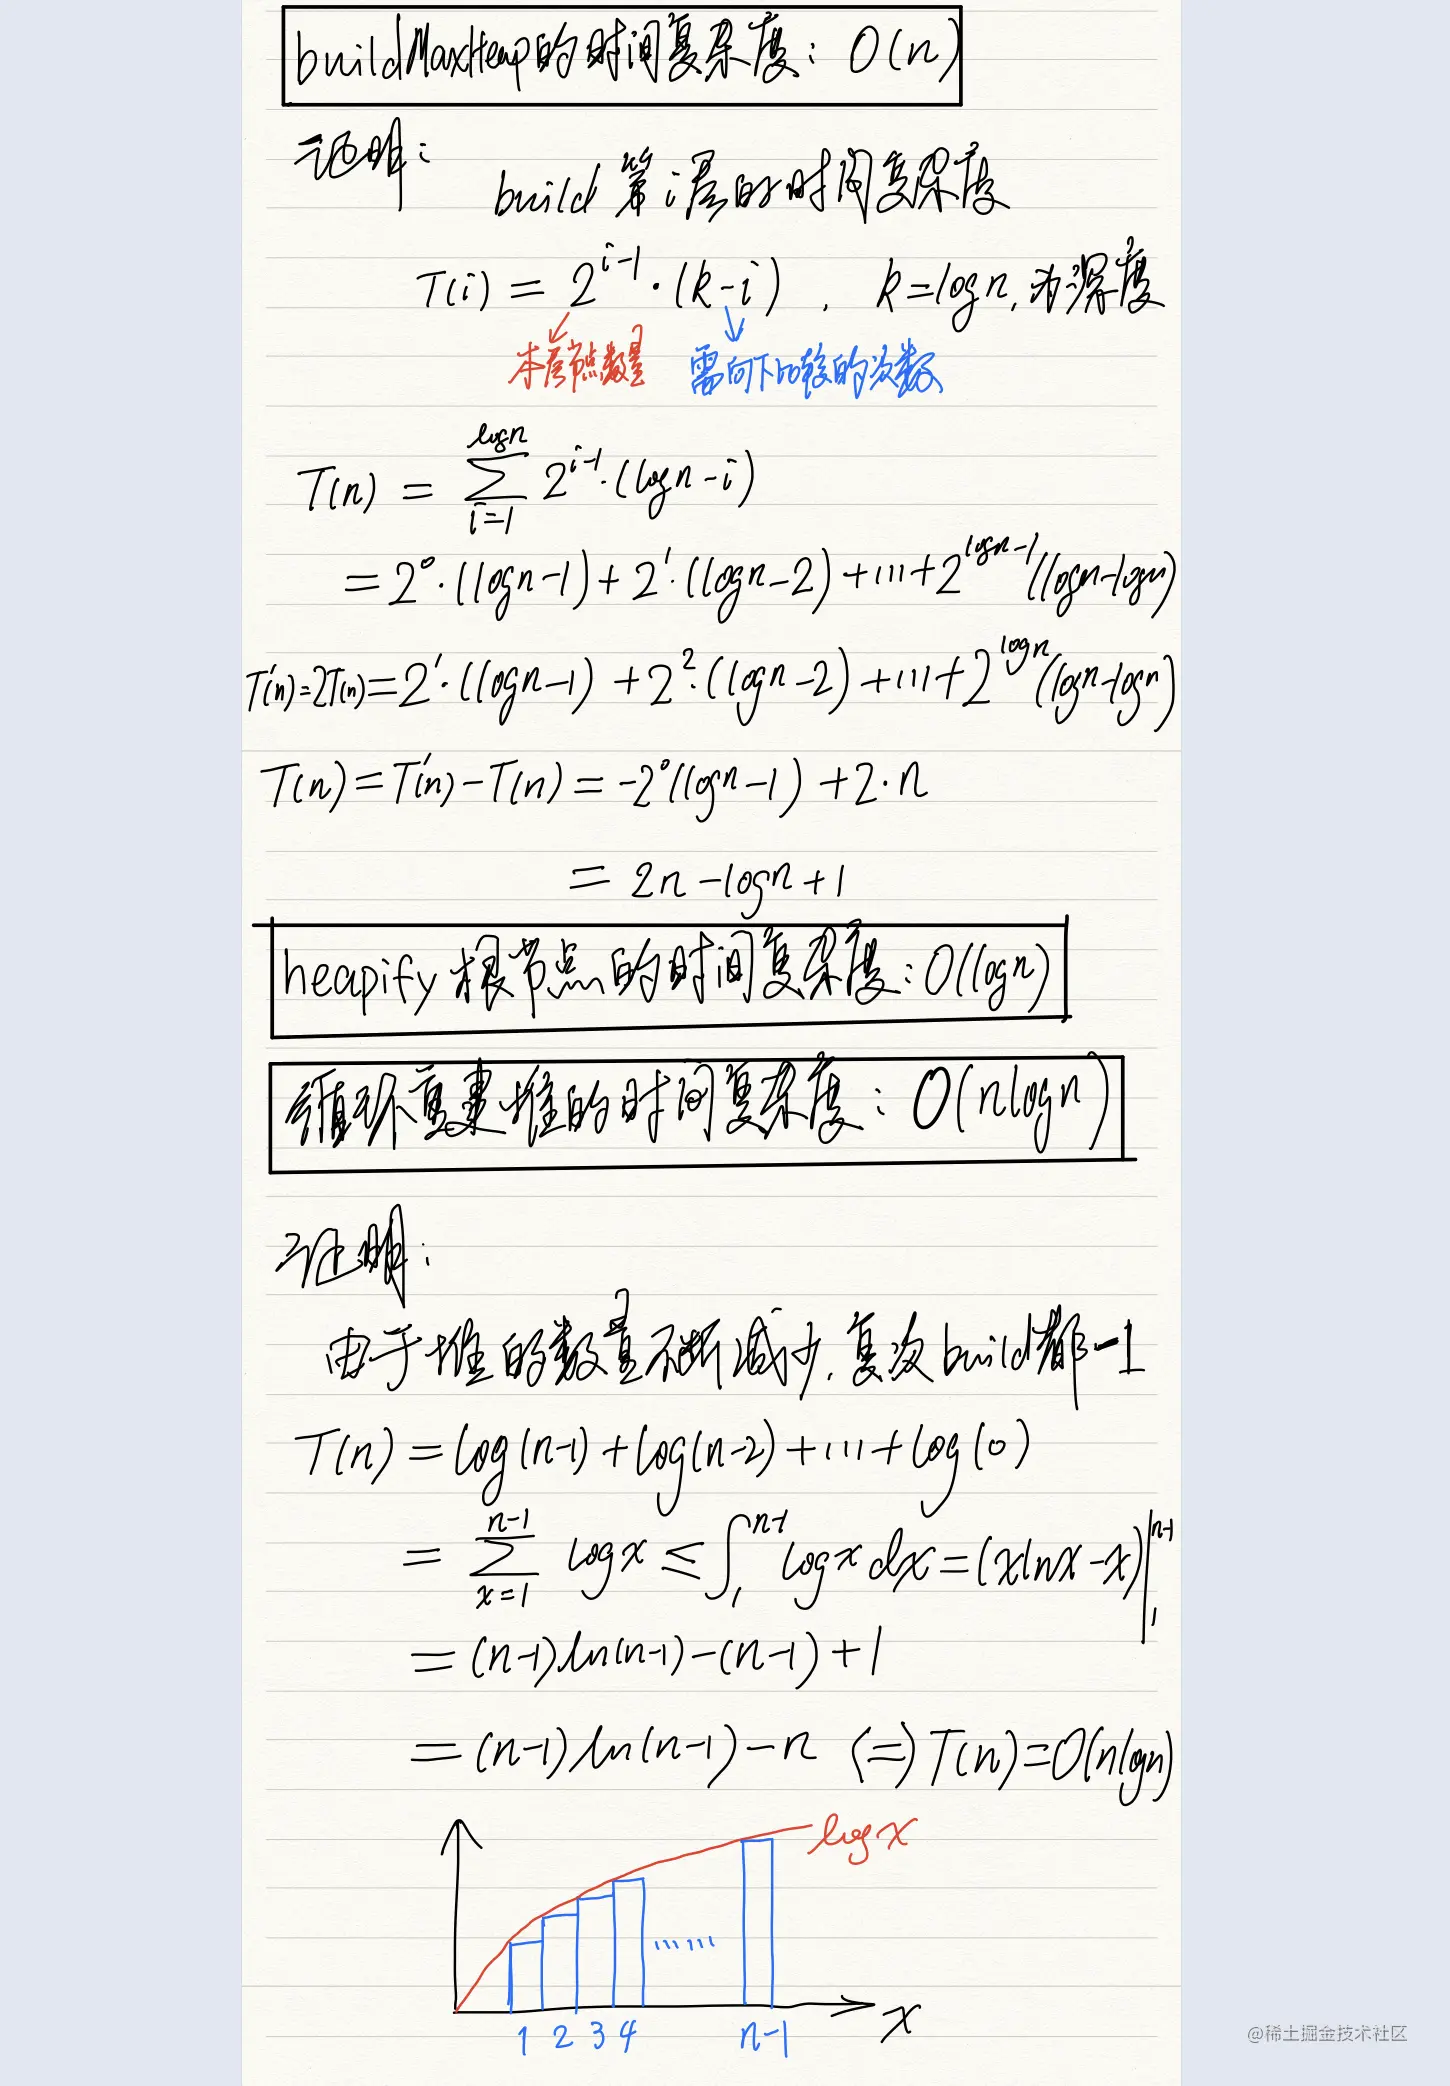 buildMaxHeap的时间复杂度：O(n)
证明：
build 第i层的时间复杂度
T(i) = 2^{i-1}·(k-i)，k=logn，为深度
本层节点数量 需向下比较的次数
T(n) = \sum_{i=1}^{logn} 2^{i-1}·(logn-i)
=2^0·(logn-1)+2^1·(logn-2)+…+2^{logn-1}(logn-logn)
T'(n)=2T(n)=2^1·(logn-1)+2^2·(logn-2)+…+2^{logn}(logn-logn)
T(n)=T'(n)-T(n)=-2^0(logn-1)+2·n
=2n-logn+1
heapify根节点的时间复杂度：O(logn)
循环重建堆的时间复杂度：O(nlogn)
证明：
由于堆的数量不断减少，每次build都-1
T(n)=log(n-1)+log(n-2)+…+log(0)
=\sum_{x=1}^{n-1} logx ≤ \int_1^{n-1} logx dx=(xlnx-x)|_1^{n-1}
=(n-1)ln(n-1)-(n-1)+1
=(n-1)ln(n-1)-n <=> T(n)=O(nlogn)
logx
……
x
1 2 3 4 n-1
@稀土掘金技术社区